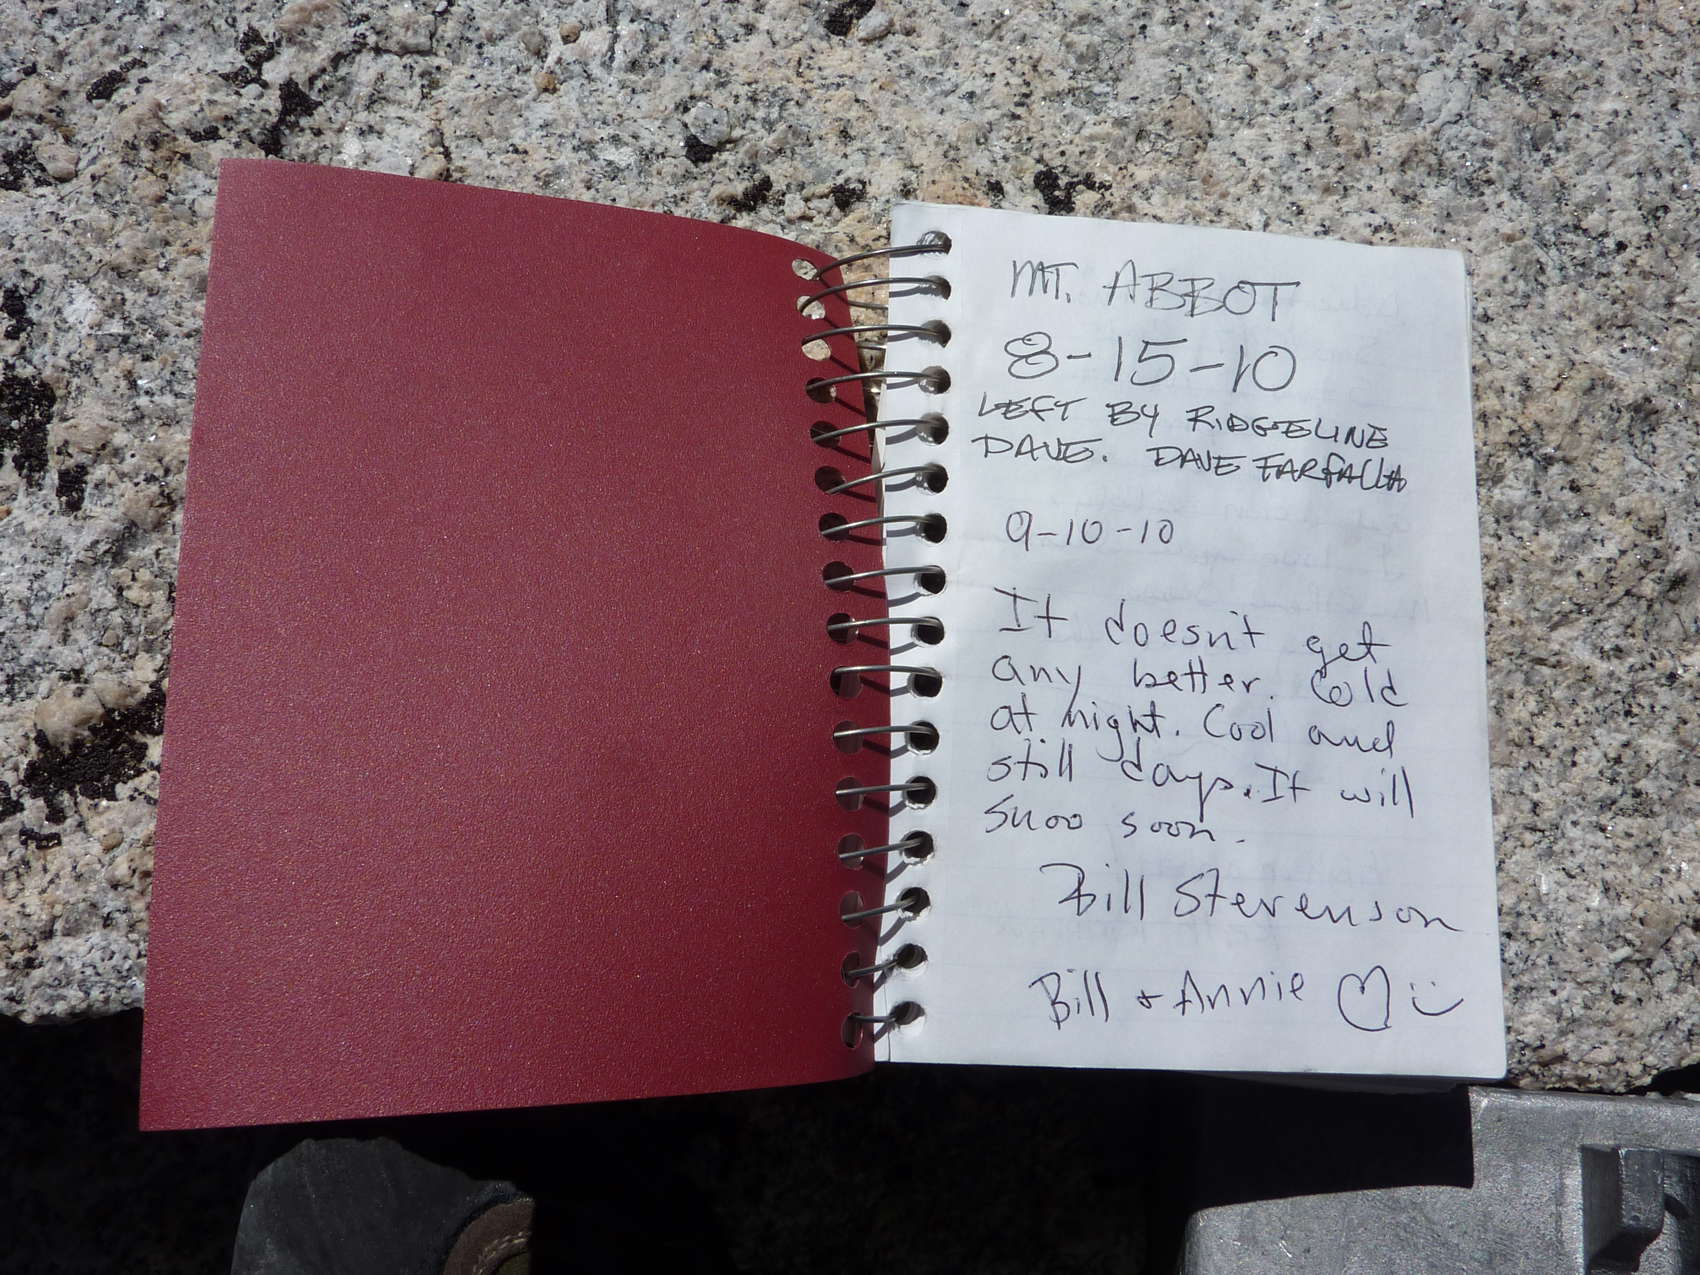 MT. ABBOT
8-15-10
LEFT BY RIDGELINE
DAVE. DAVE FARFALLA
9-10-10
It doesn't get
any better. Cold
at night. Cool and
still days. It will
snoo soon.
Bill Stevenson
Bill + Annie ♡ :)